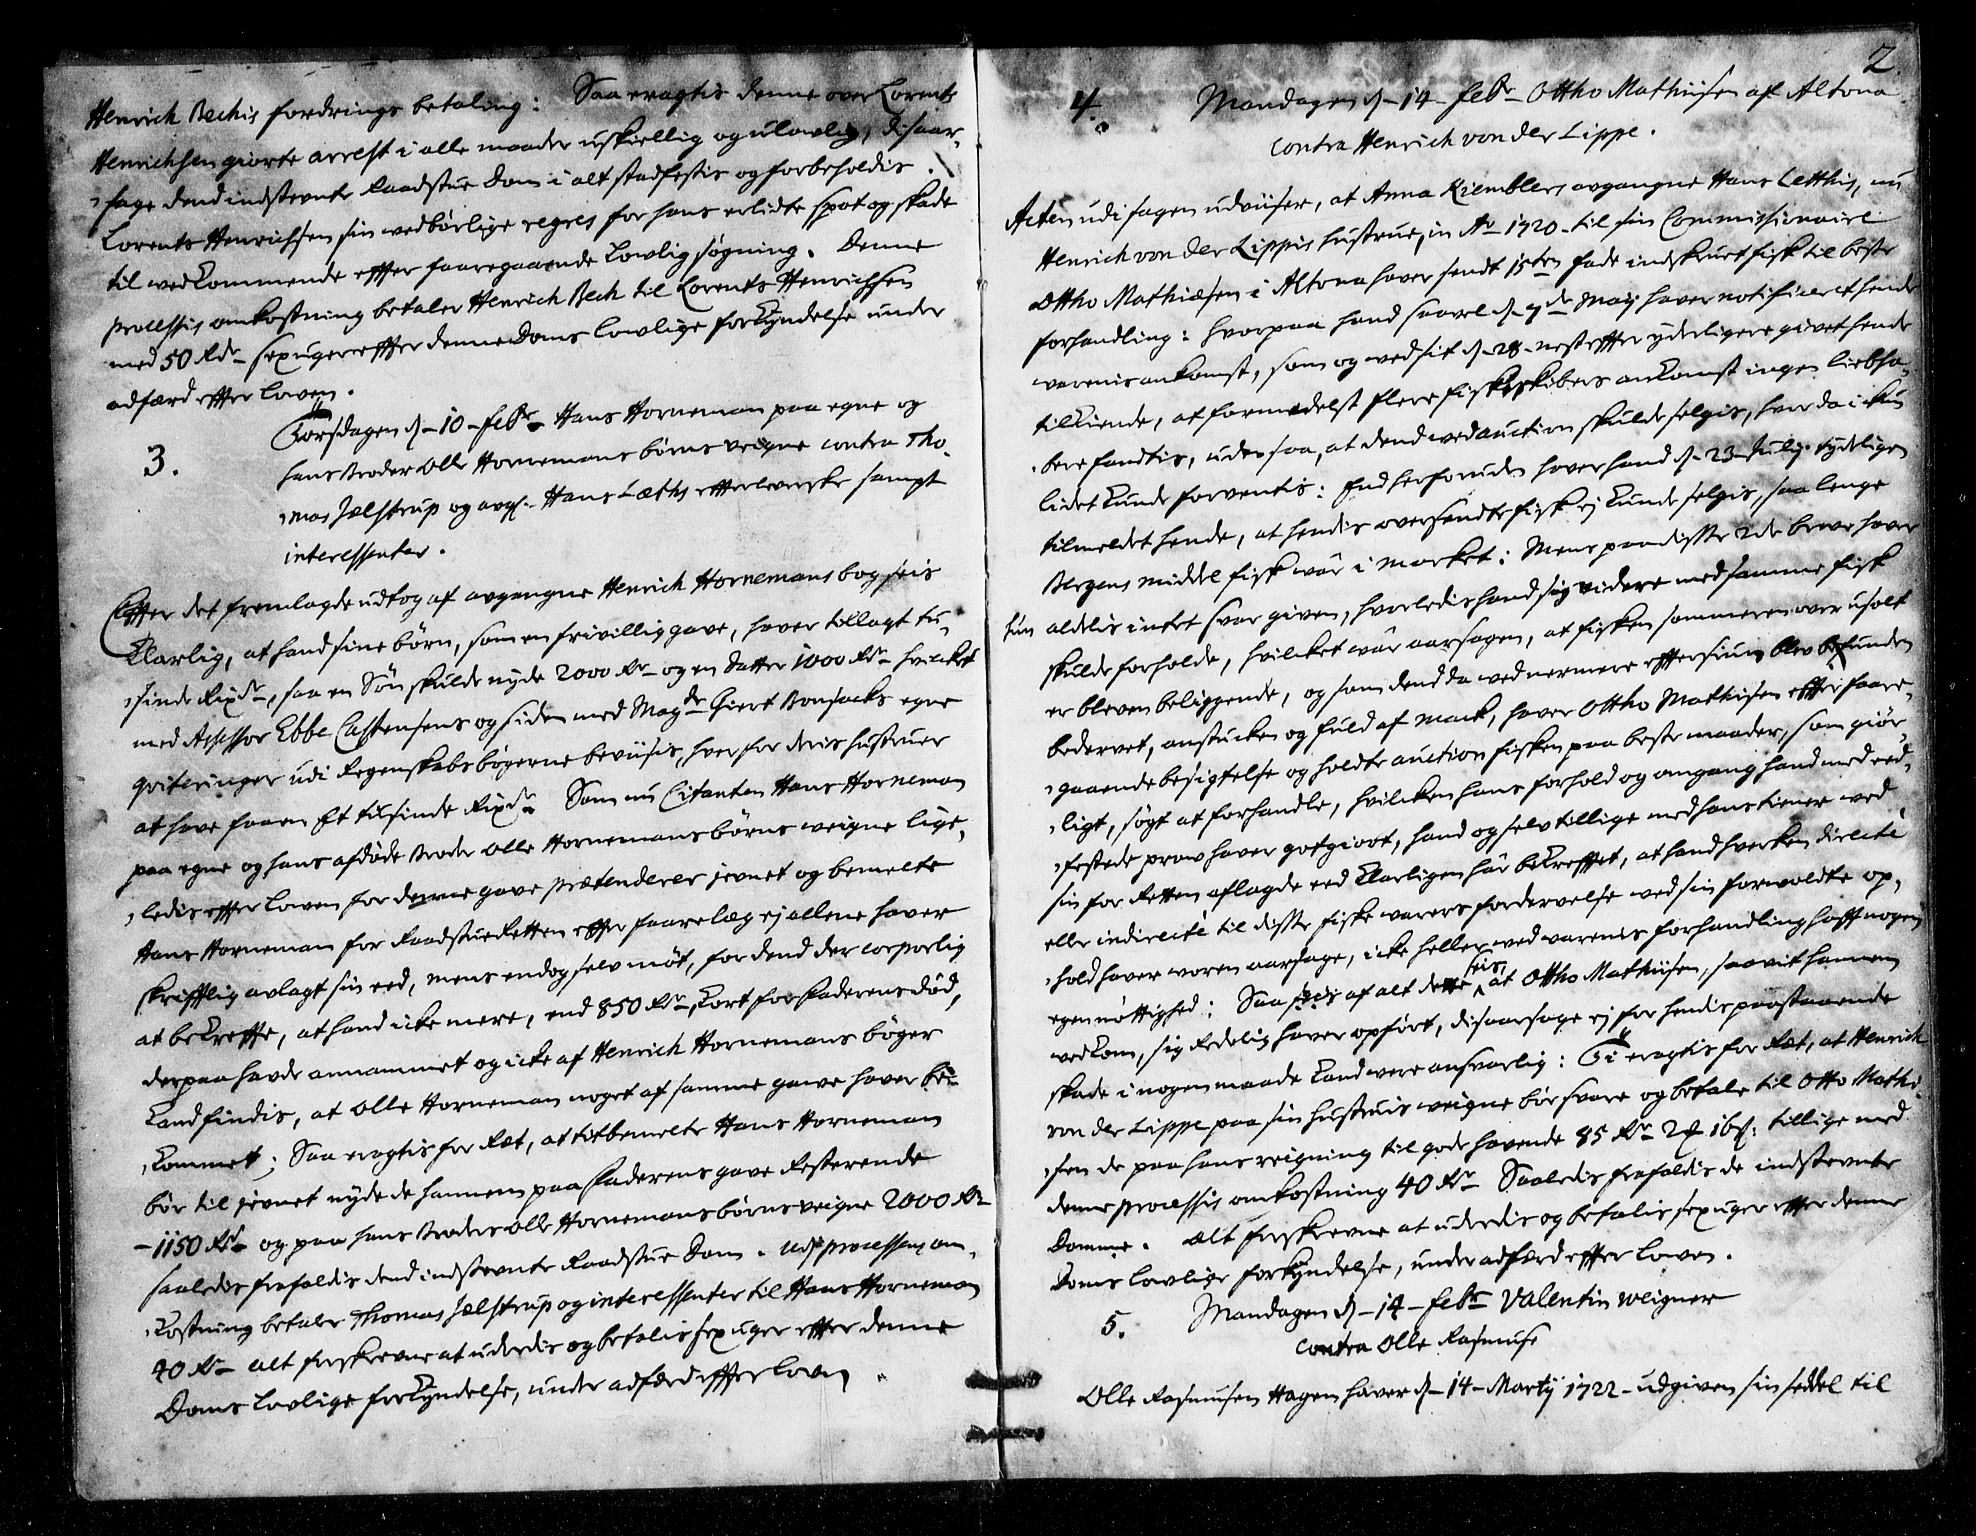 Henrich Bechis fordrings betaling: Saa eragtis denne over Lorents
Henrichsen giorte arrest i alle maader uskiellig og ulovlig, disaar-
sage dend indstevnte Raadstue Dom i alt stadfestis og forbeholdis
Lorents Henrichsen sin vedbørlige regres for hans erlidte spot og skade
til vedkommende effter foregaaende Lovlig søgning. Denne
processis omkostning betaler Henrich Bech til Lorents Henrichsen
med 50 Rdr sex uger effter denne Doms lovlige forkyndelse under
adfærd effter Loven.
3.
Torsdagen d. 10 Febr Hans Horneman paa egne og
hans Broder Olle Hornemans børns veigne contra Tho-
mas Jelstrup og avg. Hans Læths efterleverske sampt
interessenter.
Effter det fremlagde udtog af avgangne Henrich Hornemans bog seis
klarlig, at hand sine børn, som en frivillig gave, haver tillagt tu-
sinde Rixdr, saa en Søn skulde nyde 2000 Rdr og en datter 1000 Rdr hvilcket
med Assessor Ebbe Castensens og siden med Magdr Giert Bonsacks egne
qviteringer udi Regenskabs bøgerne beviisis, hver for deris hustruer
at have faaen Et tusinde Rixdr Som nu Citanten Hans Horneman
paa egne og hans afdøde Broder Olle Hornemans børns veigne lige-
ledis effter Loven for denne gave prætenderer jevnet og bemelte
Hans Horneman for Raadstue Retten effter foorelæg ej allene haver
skrifftlig avlagt sin eed, mens endog selv møt, for dend der corporlig
at bekreffte, at hand icke mere, end 850 Rdr, kort for faderens død,
derpaa havde annammet og icke af Henrich Hornemans bøger
kand findis, at Olle Horneman noget af samme gave haver be-
kommet; Saa eragtis for Ræt, at titbemelte Hans Horneman
bør til jevnet nyde de hannem paa faderens gave Resterende
1150 Rdr og paa hans Broders Olle Hornemans børns veigne 2000 Rdr
saaledis frafaldis dend indstevnte Raadstue Dom. Udj processens om-
kostning betaler Thomas Jelstrup og interessenter til Hans Horneman
40 Rdr alt forskrevne at uderedis og betalis sex uger effter denne
Doms lovlige forkyndelse, under adfærd effter Loven.
2.
4. Mandagen d. 14 Febr Ottho Mathiisen af Altona
contra Henrich von der Lippe.
Acten udi sagen udviiser, at Anna Kiemblers avgangne Hans Letthis, nu
Henrich von der Lippis hustrue, in Ao 1720 til sin Commissionaire
Ottho Mathiæsen i Altona haver sendt 15ten fade indskuret fisk til beste
forhandling: hvorpaa hand saavel d. 7de Maij haver notificeret hende
varenis ankomst, som og ved sit d. 28 nest effter yderligere givet hende
tilkiende, at formedelst flere fiskeskibers ankomst ingen liebha-
bere fandtis, uden saa, at dend ved auction skulde selgis, hvor da ickun
lidet kunde forventis: End herforuden haver hand d. 23 Julij tydeligen
tilmeldet hende, at hendis oversendte fisk ej kunde selgis, saa lenge
Bergens middel fisk var i market: Mens paa disse 2de breve haver
hun aldelis intet svar given, hvorledis hand sig videre med samme fisk
skulde forholde, hvilcket var aarsagen, at fisken sommeren over usolt
er bleven beliggende, og som dend da ved nermere effterseiun blev befunden
bedervet, anstucken og fuld af mack, haver Ottho Mathisen effter foore-
gaaende besigtelse og holdte auction fisken paa beste maader, som giør-
ligt, søgt at forhandle, hvilcken hans forhold og omgang hand med eed-
festede prov haver gotgiort, hand og selv tillige med hans tiener ved
sin for Retten aflagde eed klarligen har bekrefftet, at hand hverken directé
eller indirecté til disse fiske varers fordervelse ved sin forvoldte op-
hold haver voren aarsage, icke heller ved varenes forhandling hafft nogen
egennøttighed: Saa seis af alt dette, at Ottho Mathiisen, saavit hannem
vedkom, sig Redelig haver opført, disaarsage ej for hendis paastaaende
skade i nogen maade kand være ansvarlig: Ti eragtis for Ræt, at Henrich
von der Lippe paa sin hustruis veigne bør svare og betale til Otto Mathi-
sen de paa hans reigning til gode havende 85 Rdr 2 16 s: tillige med
denne processis omkostning 40 Rdr Saaledis frafaldis de indstevnte
Domme. Alt forskrevne at uderedis og betalis sex uger effter denne
Doms lovlige forkyndelse, under adfærd effter Loven.
5. Mandagen d. 14 Febr Valentin Weigner
contra Olle Rasmuse
Olle Rasmusen Hagen haver d. 14 Martij 1722 udgiven sin seddel til